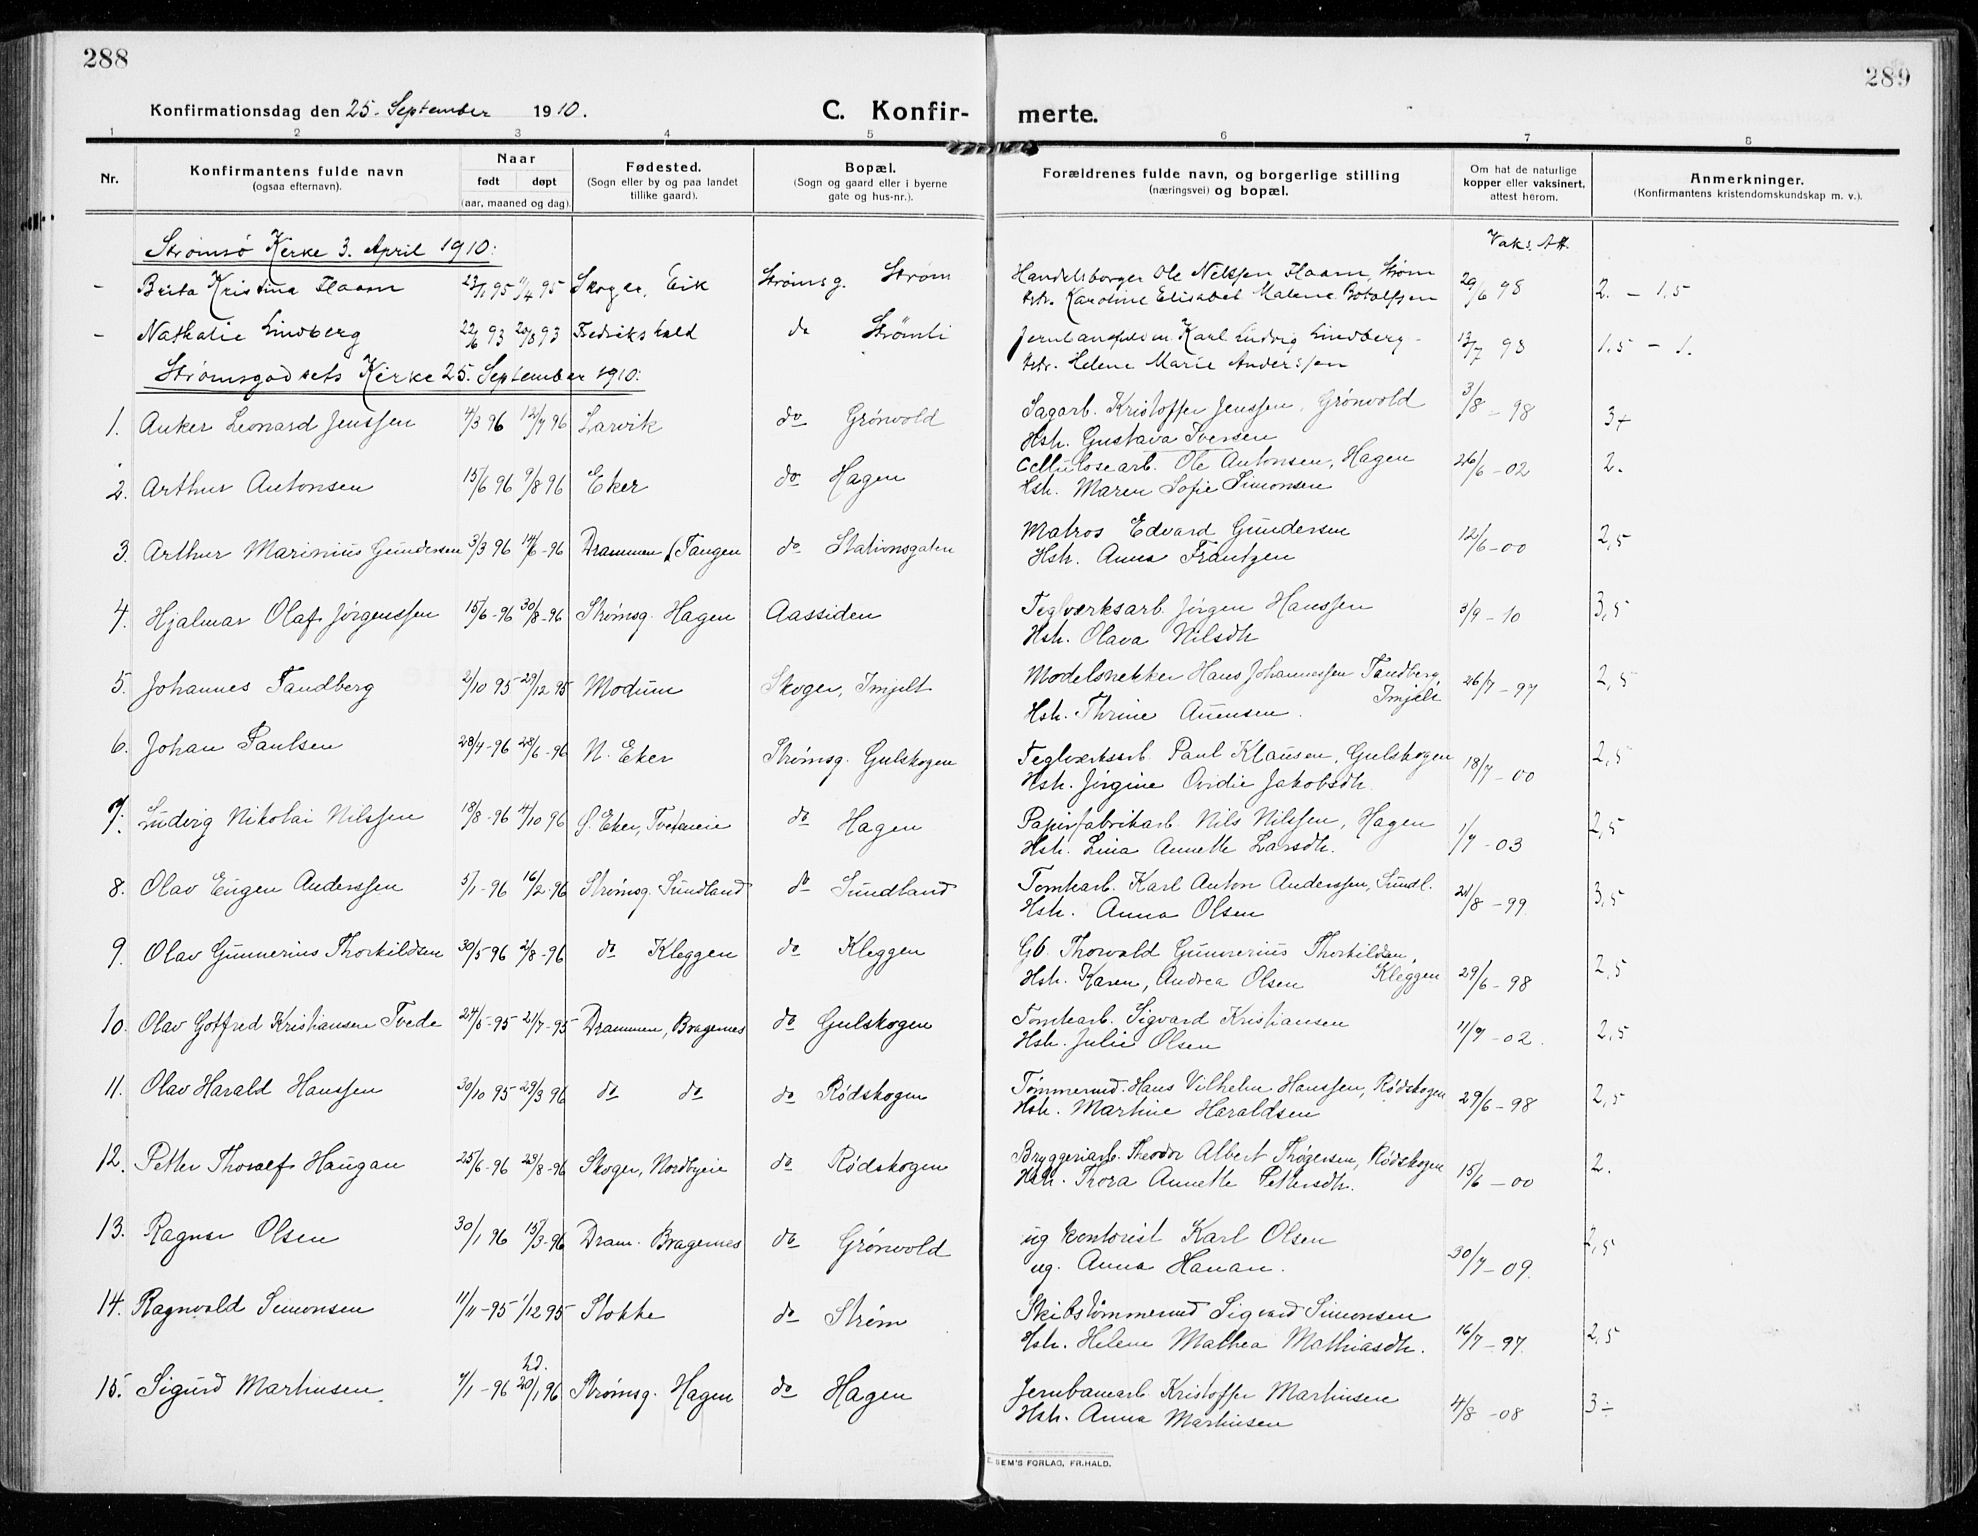 288
289
Konfirmationsdag den 25. September 1910.
C. Konfir- merte.
1 2 3 4 5 6 7 8
Nr.
Konfirmantens fulde navn
(ogsaa efternavn).
Naar
født døpt
(aar, maaned og dag).
Fødested.
(Sogn eller by og paa landet
tillike gaard).
Bopæl.
(Sogn og gaard eller i byerne
gate og hus-nr.).
Forældrenes fulde navn, og borgerlige stilling
(næringsvei) og bopæl.
Om hat de naturlige
kopper eller vaksinert,
attest herom.
Anmerkninger.
(Konfirmantens kristendomskundskap m. v.).
Strømsø Kirke 3. April 1910:
Vaks. Att.
- Brita Kristine Flaam 23/1 95 4/4 95 Skoger, Eik Strømsg. Strøm Handelsborger Ole Nelssen Flaam, Strøm 29/6 98 2. - 1,5
Hstr. Karoline Elisabet Malene Botolfsen
- Nathalie Lindberg 22/6 93 20/8 93 Fredrikshald do Strømli Karl Ludvig Lindberg - 13/7 98 1.5 - 1.
Hstr. Helene Marie Anderssen
Strømsgodsets Kirke 25. September 1910:
1. Anker Leonard Jenssen 4/3 96 12/7 96 Larvik do Grønvold Sagarb. Kristoffer Jenssen, Grønvold 3/8 - 98 3+
Hstr. Gustava Iversen
2. Arthur Antonsen 15/6 96 9/8 96 Eker do Hagen Cellulosearb. Ole Antonsen, Hagen 26/6 - 02 2.
Hstr. Maren Sofie Simonsen
3. Arthur Marinius Gundersen 3/3 96 14/6 - 96 Drammen (Tangen do Stationsgaten Matros Edvard Gundersen 12/6 - 00 2,5
Hstr. Anna Frantzen
4. Hjalmar Olaf Jørgenssen 15/6 - 96 30/8 - 96 Strømsg. Hagen Aassiden Teglverksarb. Jørgen Hanssen 3/9 - 10 3,5
Hstr. Olava Nilsdtr
5. Johannes Tandberg 2/10 95 29/12 95 Modum Skoger, Imjelt Modelsnekker Hans Johannessen Tandberg, 26/7 - 97 2,5
Hstr. Thrine Auensen. Imjelt
6. Johan Paulsen 28/4 - 96 28/6 - 96 N. Eker Strømsg. Gulskogen Teglverksarb. Paul Klausen, Gulskogen 18/7 - 00 2,5
Hstr. Jørgine Ovidie Jakobsdtr.
7. Ludvig Nikolai Nilssen 18/8 - 96 4/10 96 Ø. Eker, do Hagen Papirfabrikarb. Nils Nilssen, Hagen 1/7 - 03 2,5
Hstr. Lina Annette Larsdtr.
8. Olav Eugen Anderssen 5/1 - 96 16/2 - 96 Strømsg. Sundland do Sundland Tomtearb. Karl Anton Anderssen, Sundl. 21/8 - 99 3,5
Hstr. Anna Olsen
9. Olav Gunnerius Thorkildsen 30/5 - 96 2/8 - 96 do Kleggen do Kleggen Gb. Thorvald Gunnerius Thorkildsen, 29/6 - 98 2,5
Hstr. Karen, Andrea Olsen Kleggen
10. Olav Gotfred Kristiansen Tvede 24/5 - 95 21/7 - 95 Drammen, Bragernes do Gulskogen Tomtearb. Sigvard Kristiansen 11/7 - 02. 2,5
Hstr. Julie Olsen
11. Olav Harald Hanssen 30/10 95 29/3 96 do do do Rødskogen Tømmermd. Hans Vilhelm Hanssen, Rødskogen 29/6 - 98 2,5
Hstr. Martine Haraldsen
12. Petter Thoralf Haugan 25/6 - 96 23/8 - 96 Skoger, Nordbyeie do Rødskogen Bryggeriarb. Theodor Albert Thøgersen, Rødskogen 15/6 - 00 2.
Hstr. Thora Annette Pettersdtr.
13. Ragnar Olsen 30/1 96 15/3 - 96 Dram. Bragernes do Grønvold ug kontorist Karl Olsen 30/7 - 09. 2,5
ug. Anna Hanan.
14. Ragnvald Simonsen 11/11 - 95 1/12 95 Stokke do Strøm Skibstømmermd Sigvard Simonsen 16/7 - 97. 2,5
Hstr. Helene Mathea Mathiasdtr.
15. Sigurd Martinsen 7/1 - 96 hd. 20/1 96 Strømsg. Hagen do Hagen Jernbanearb. Kristoffer Martinsen 4/8 - 08 3÷
Hstr. Anna Martinsen
SEM'S FORLAG, FR.HALD.